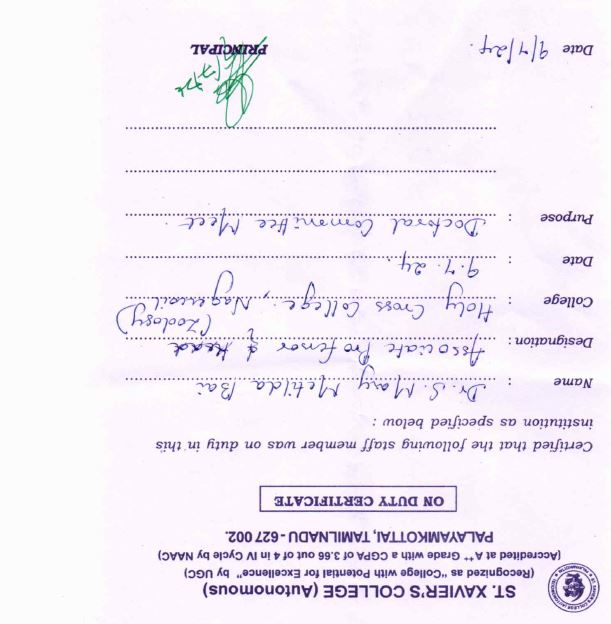 ST. XAVIER'S COLLEGE (Autonomous)
(Recognized as "College with Potential for Excellence" by UGC)
(Accredited at A++ Grade with a CGPA of 3.66 out of 4 in IV Cycle by NAAC)
PALAYAMKOTTAI, TAMILNADU - 627 002.
ON DUTY CERTIFICATE
Certified that the following staff member was on duty in this
institution as specified below :
Name : Dr. S. Mary Metilda Bai
Designation : Associate Professor & Head
(Zoology)
College : Holy Cross College, Nagercoil
Date : 9.7.24.
Purpose : Doctoral Committee Meet.
Date 9/7/24.
PRINCIPAL